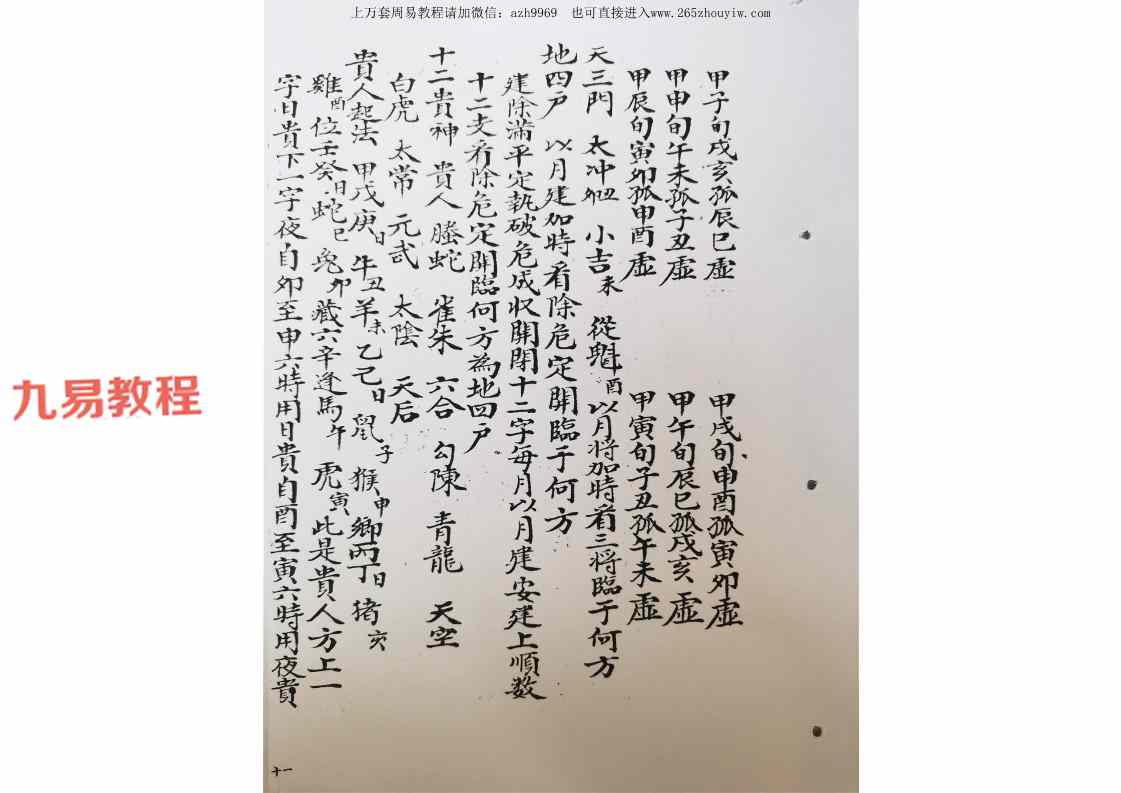 上万套周易教程请加微信：azh9969　也可直接进入www.265zhouyiw.com
甲子旬戌亥孤辰巳虛　甲戌旬申酉孤寅卯虛
甲申旬午未孤子丑虛　甲午旬辰巳孤戌亥虛
甲辰旬寅卯孤申酉虛　甲寅旬子丑孤午未虛
天三門　太冲卯　小吉未　從魁酉　以月將加時看三將臨于何方
地四戶　以月建加時看除危定開臨于何方
建除滿平定執破危成収開閉十二字每月以月建安建上順数
十二支看除危定開臨何方為地四戶
十二貴神　貴人　螣蛇　雀朱　六合　勾陳　青龍　天空
白虎　太常　元武　太陰　天后
貴人起法　甲戊庚日牛丑羊未乙己日鼠子猴申鄉丙丁日猪亥
雞酉位壬癸日蛇巳兔卯藏六辛逢馬午虎寅此是貴人方上一
字日貴下一字夜自卯至申六時用日貴自酉至寅六時用夜貴
十一
九易教程